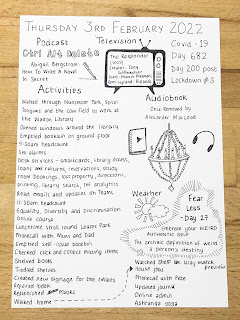 THURSDAY 3RD FEBRUARY 2022
Podcast
Ctrl Alt Delete
Abigail Bergstrom:
How To Write A Novel
In Secret
Television
The Responder
Covid-19
Day 682
Day 200 post
Lockdown #3
Activities
Walked through Nunsmoor Park, Spital
Tongues and the cow field to work at
the Walton Library
Opened windows around the library
Emptied bookbin on ground floor
9:30am headcount
Set alarms
Desk services - smartcards, library access,
loans and returns, reservations, study
room bookings, lost property, directions,
printing, library search, ref analytics
Read emails and updates on Teams
11:30am headcount
Equality, diversity and discrimination
online course
Lunchtime stroll round Leazes Park
Phonecall with Mum and Dad
Emptied self-issue bookbin
Checked click and collect moving items
Shelved books
Tidied shelves
Created new signage for the library
Replenished masks
Walked home
Audiobook
Once Removed by
Alexander MacLeod
Weather
Fear
Less
- Day 27
Embrace your WEIRD
Authentic self
The archaic definition of weird is
a person's destiny
Watched Shelf Isle Way march
preview
Phonecall with Pete
Updated journal
Online admin
Ashtanga yoga